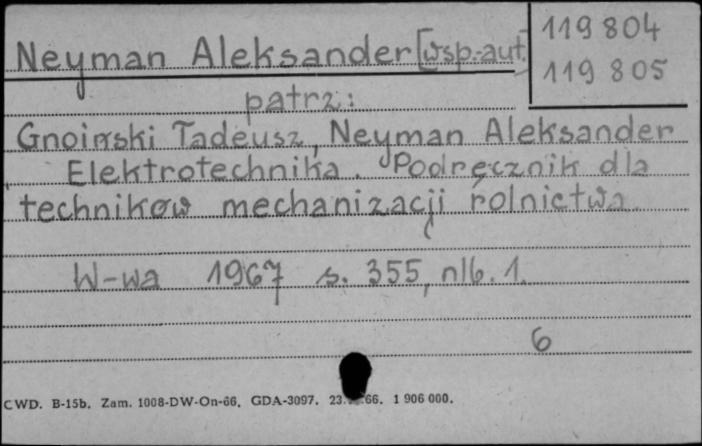 Neyman Aleksander [wsp.-aut.]
119 804
119 805
patrz:
Gnoiński Tadeusz, Neyman Aleksander
Elektrotechnika. Podręcznik dla
techników mechanizacji rolnictwa.
W-wa 1967 s. 355, nlb. 1.
6
CWD. B-15b. Zam. 1008-DW-On-66. GDA-3097. 23. 66. 1 906 000.